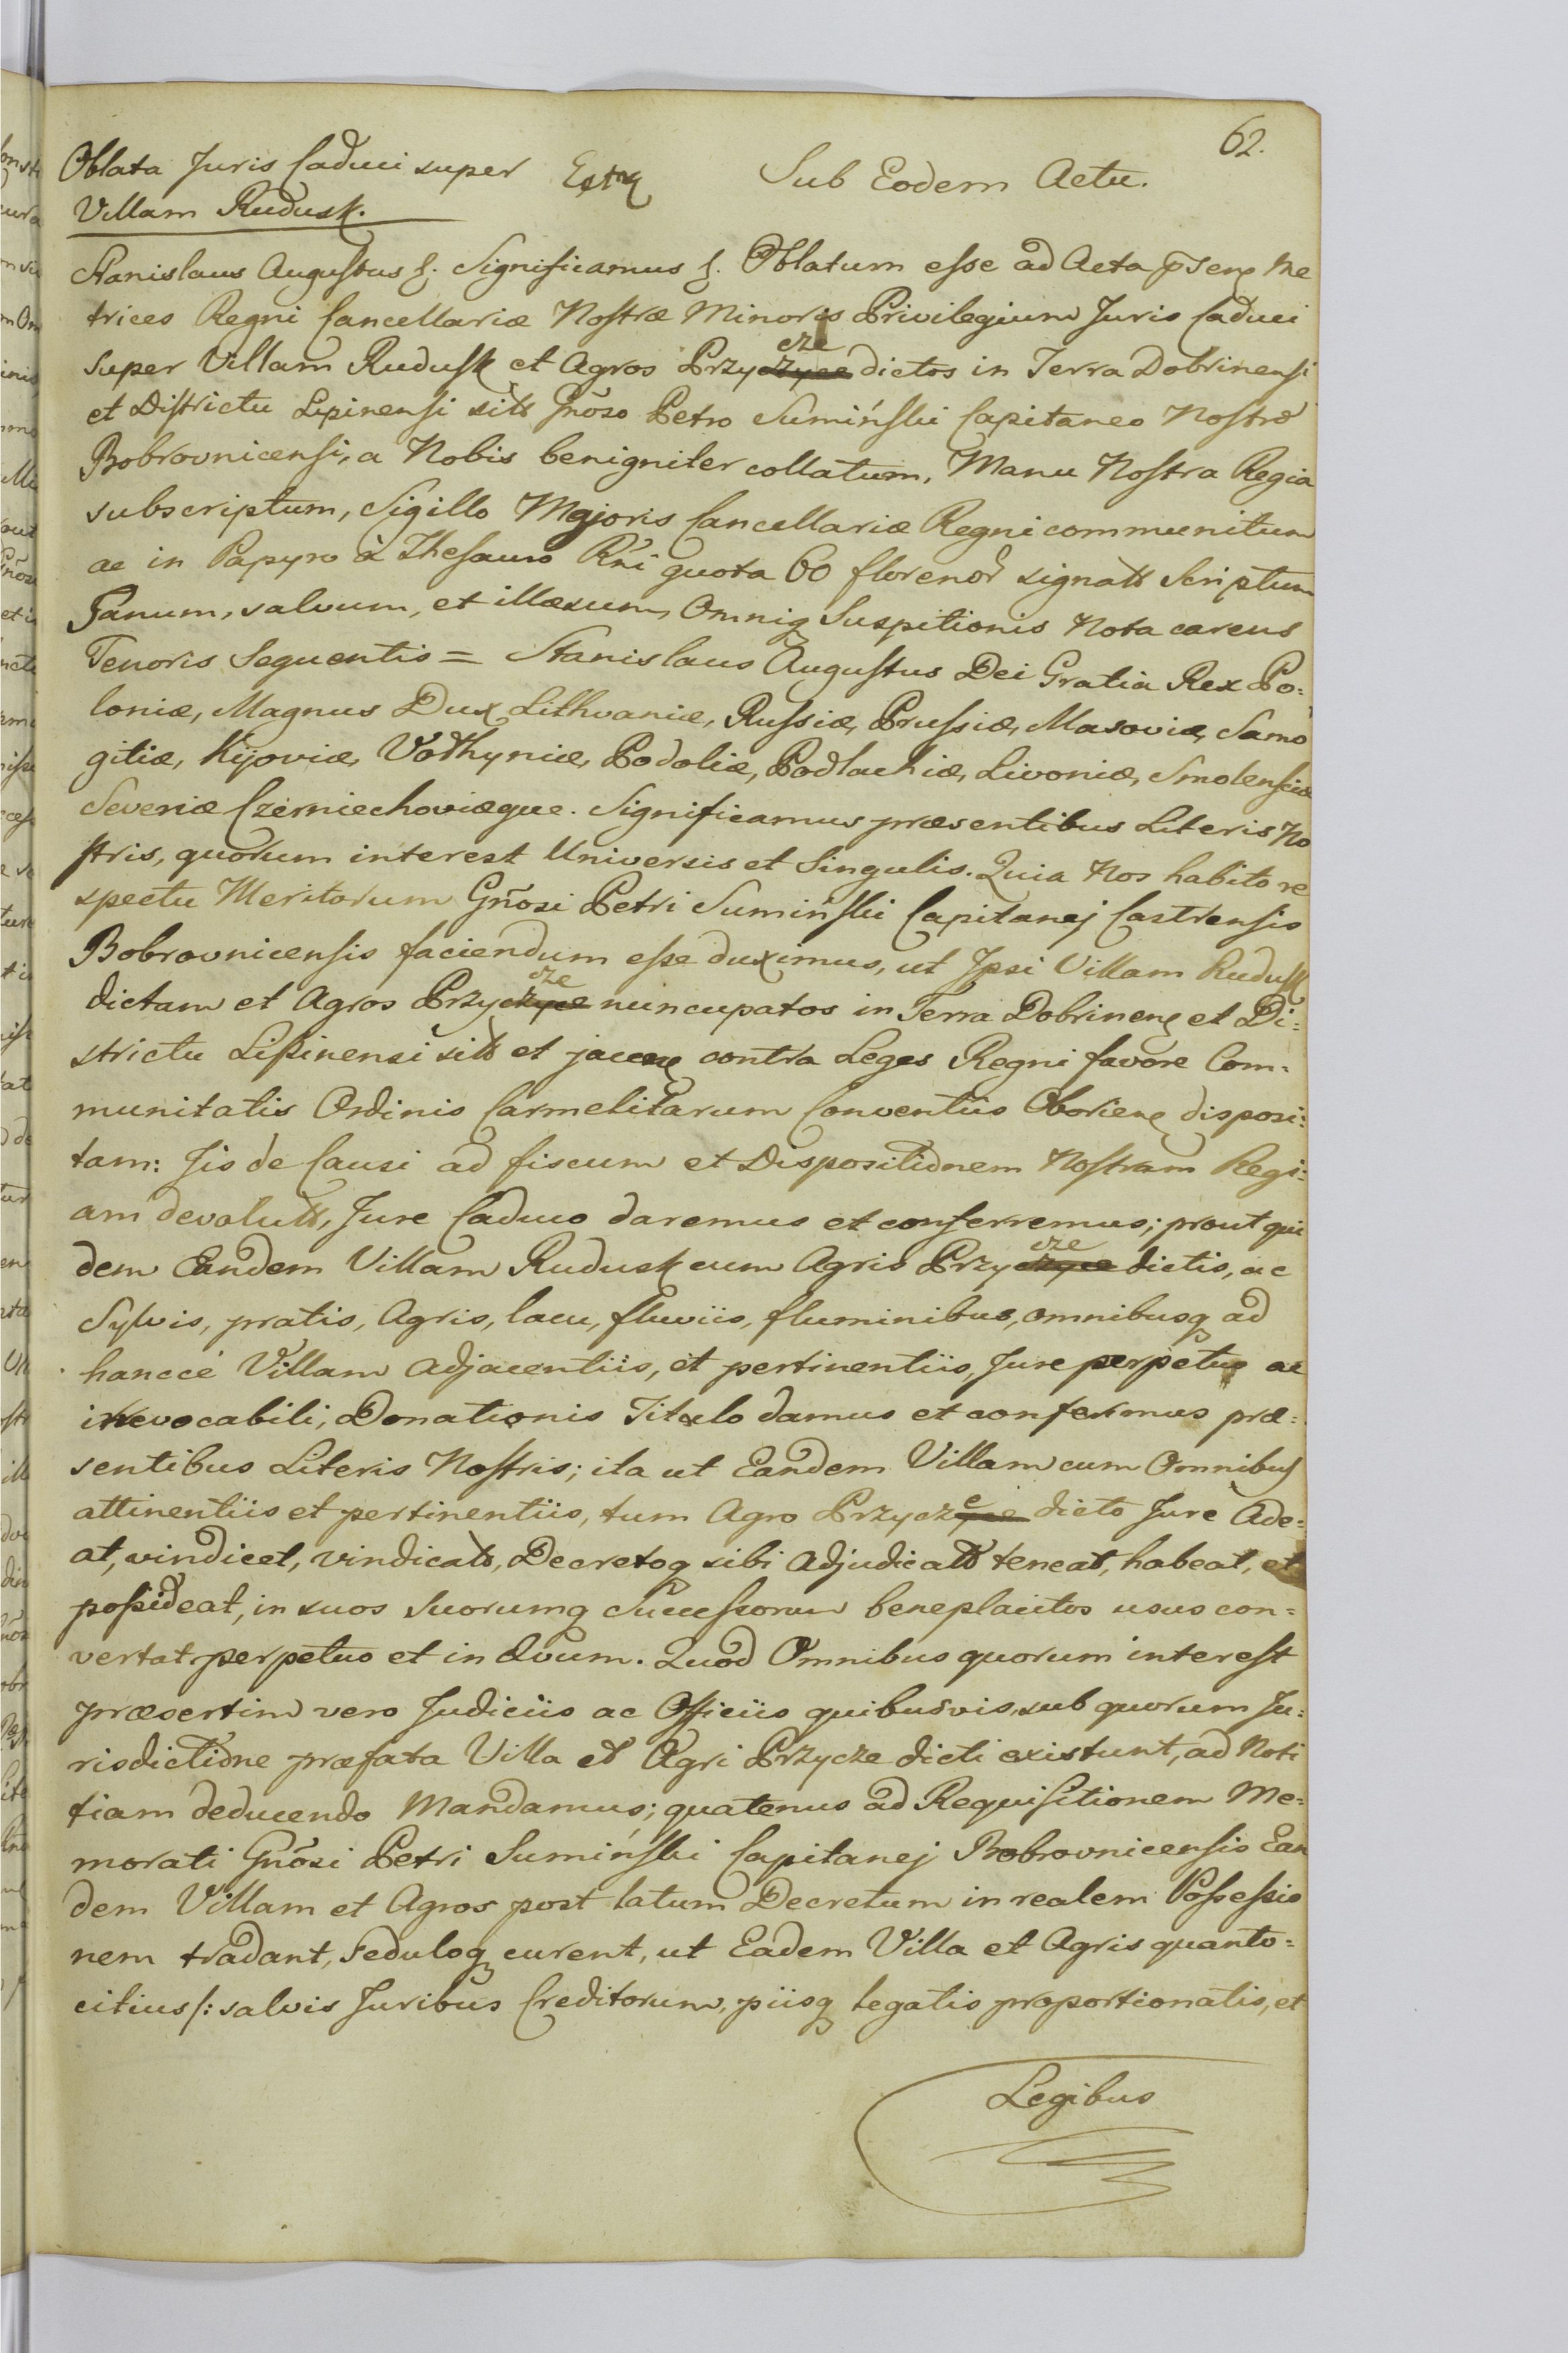 62.
Oblata Juris Caduci super Extr Sub Eodem Actu.
Villam Rudusk.
Stanislaus Augustus &. Significamus &. Oblatum esse ad Acta p̄senʒ Me
trices Regni Cancellariæ Nostræ Minoris Privilegium Juris Caduci
super Villam Rudusk et Agros Przyczyce cze dictos in Terra Dobrinensi
et Districtu Lipinensi sitt Gñoso Petro Sumiński Capitaneo Nostro
Bobrovnicensi, a Nobis benigniter collatum, Manu Nostra Regia
subscriptum, Sigillo Majoris Cancellariæ Regni communitum
ac in Papyro à Thesauro Rñi quota 60 florenor signatt Scriptum
Sanum, salvum, et illæsum, Omniq Suspitionis Nota carens
Tenoris Sequentis = Stanislaus Augustus Dei Gratia Rex Po:
loniæ, Magnus Dux Lithvaniæ, Russiæ, Prussiæ, Masoviæ, Samo
gitiæ, Kijoviæ, Volhyniæ, Podoliæ, Podlachiæ, Livoniæ, Smolensciæ
Severiæ Czerniechoviæque. Significamus præsentibus Literis No
stris, quorum interest Universis et Singulis. Quia Nos habito re
spectu Meritorum Gñosi Petri Sumiński Capitanej Castrensis
Bobrovnicensis faciendum esse duximus, ut Ipsi Villam Rudusk
dictam et Agros Przyczyce cze nuncupatos in Terra Dobrinenʒ et Di:
strictu Lipinensi sitt et jacenʒ contra Leges Regni favore Com:
munitatis Ordinis Carmelitarum Conventûs Oborienʒ disposi:
tam: Jis de Causi ad fiscum et Dispositionem Nostram Regi:
am devolutt, Jure Caduco daremus et conferremus; prout qui
dem Eandem Villam Rudusk cum Agris Przyczyce cze dictis, ac
Sylvis, pratis, Agris, lacu, fluviis, fluminibus, omnibusq ad
hancce Villam adjacentiis, et pertinentiis, Jure perpetuo ac
irrevocabili, Donationis Titulo damus et conferimus præ:
sentibus Literis Nostris; ita ut Eandem Villam cum Omnibus
attinentiis et pertinentiis, tum Agro Przyczyce e dicto Jure Ade:
at, vindicet, vindicatt, Decretoq sibi adjudicatt teneat, habeat, et
possideat, in suos Suorumq Successorum beneplacitos usus con:
vertat perpetuo et in ævum. Quod Omnibus quorum interest
præsertim vero Judiciis ac Officiis quibusvis, sub quorum Ju:
risdictione præfata Villa et Agri Przycze dicti existunt, ad Noti
tiam deducendo Mandamus; quatenus ad Requisitionem Me:
morati Gñosi Petri Sumiński Capitanej Bobrovnicensis Ean
dem Villam et Agros post latum Decretum in realem Possessio
nem tradant, Seduloq curent, ut Eadem Villa et Agris quanto:
citius /: salvis Juribus Creditorum, piisq legatis proportionatis, et
Legibus